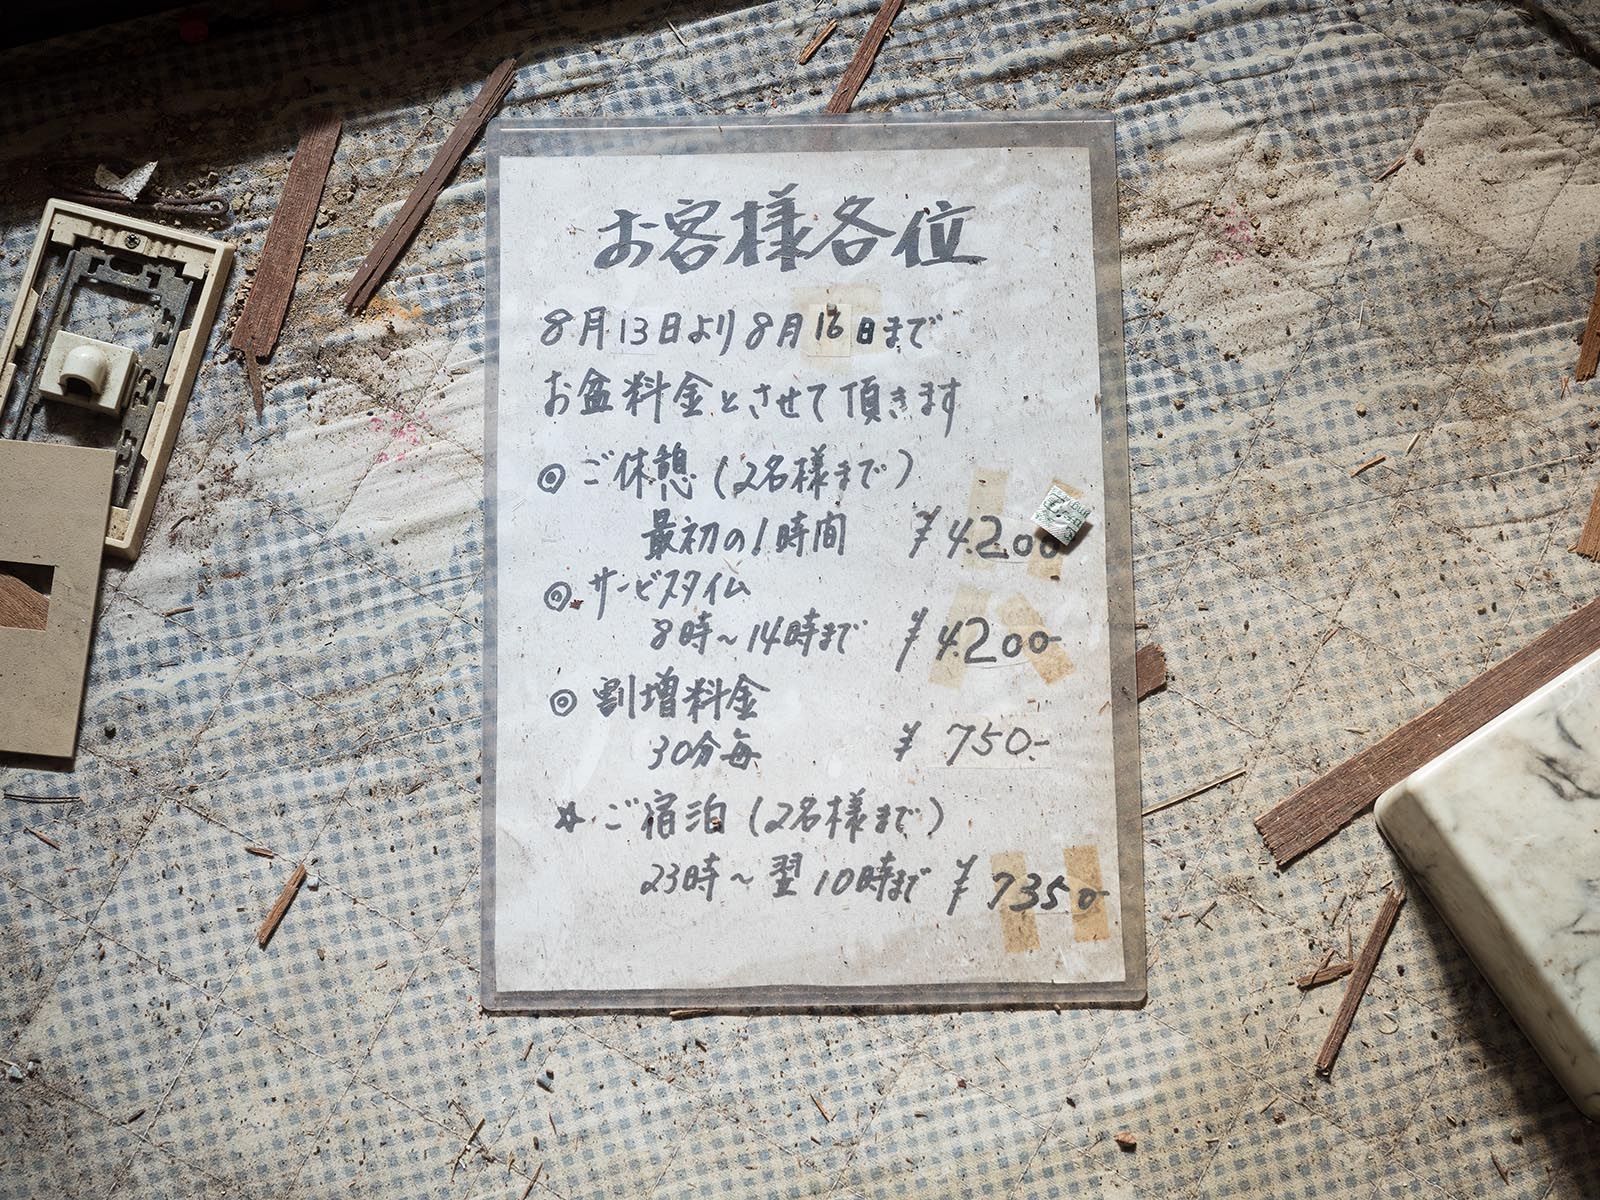 お客様各位
8月13日より8月16日まで
お盆料金とさせて頂きます
◎ ご休憩(2名様まで)
最初の1時間 ¥4.200
◎ サービスタイム
8時~14時まで ¥4.200-
◎ 割増料金
30分毎 ¥750.-
☆ ご宿泊(2名様まで)
23時~翌10時まで ¥7350-